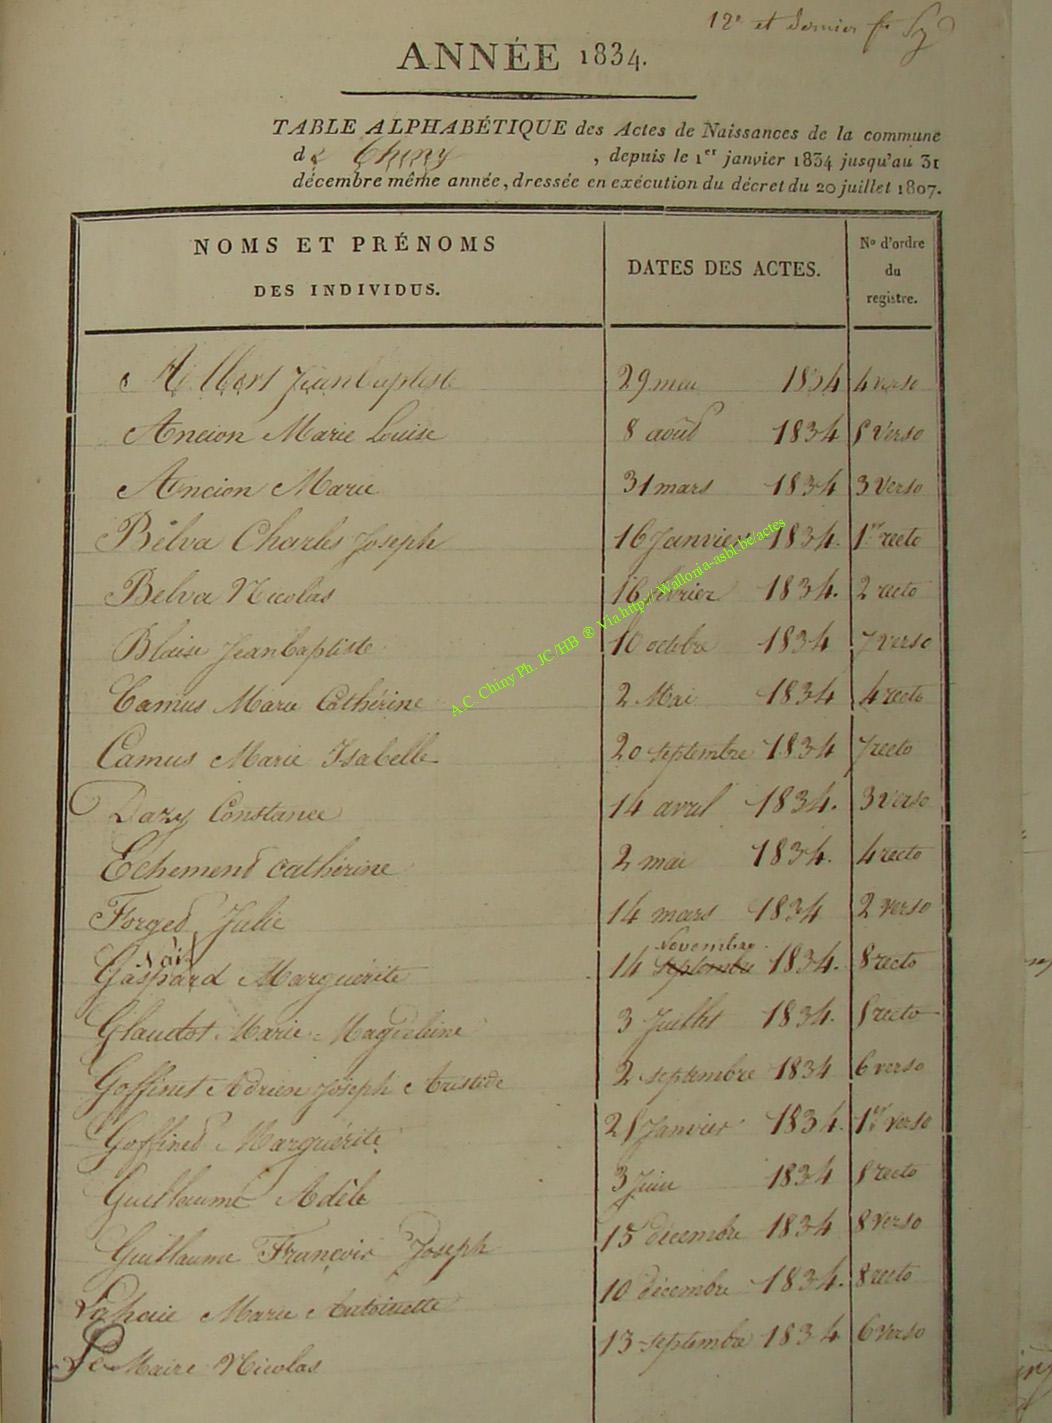 12e et dernier f.
ANNÉE 1834.
TABLE ALPHABÉTIQUE des Actes de Naissances de la commune
de Chiny, depuis le 1er janvier 1834 jusqu'au 31
décembre même année, dressée en exécution du décret du 20 juillet 1807.
NOMS ET PRÉNOMS DES INDIVIDUS. DATES DES ACTES. No d'ordre du registre.
Albert Jean baptiste 29 mai 1834 4 verso
Ancion Marie Louise 8 août 1834 5 Verso
Ancion Marie 31 mars 1834 3 Verso
Belva Charles Joseph 16 Janvier 1834. 1er recto
Belva Nicolas 16 février 1834. 2 recto
Blaise Jean baptiste 10 octobre 1834 7 verso
Camus Marie Cathérine 2 Mai 1834 4 recto
Camus Marie Isabelle 20 septembre 1834 7 recto
Dazy Constance 14 avril 1834. 3 Verso
Echement cathérine 2 mai 1834. 4 recto
Forget Julie 14 mars 1834 2 verso
Novembre
Gaspard Marguérite 14 septembre 1834. 8 recto
Glaudot Marie-Magdelaine 3 Juillet 1834. 5 recto
Goffinet Adrien Joseph Aristide 2 septembre 1834 6 verso
Goffinet Marguérite 21 Janvier 1834. 1er verso
Guillaume Adèle 3 Juin 1834 5 recto
Guillaume François Joseph 15 décembre 1834 8 verso
Lahaie Marie Antoinette 10 décembre 1834. 8 recto
Le Maire Nicolas 13 septembre 1834 6 verso
A.C. Chiny Ph. JC/HB ® Via http://Wallonia-asbl-be/actes